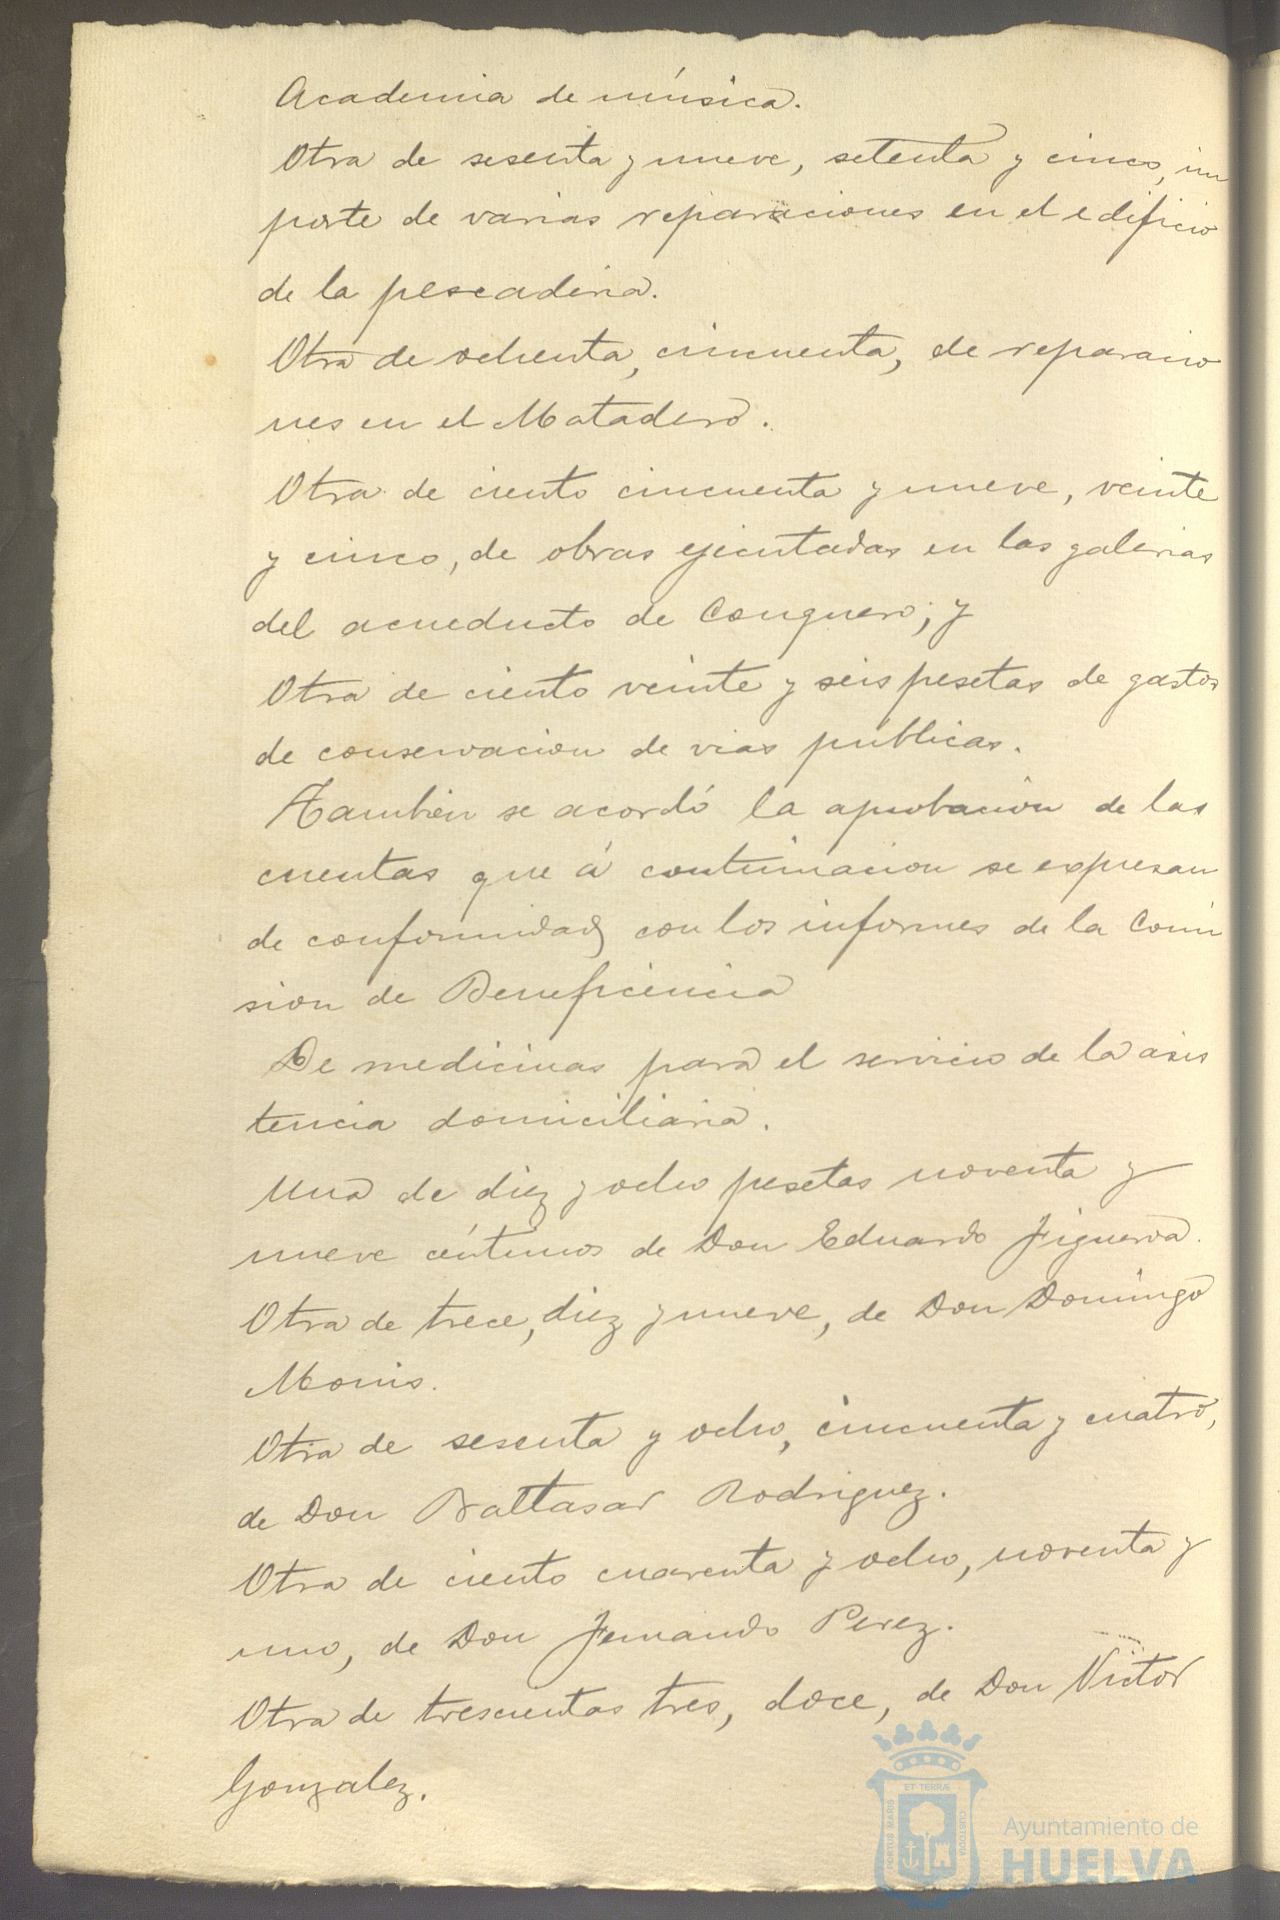 Academia de música.
Otra de sesenta y nueve, setenta y cinco, im
porte de varias reparaciones en el edificio
de la pescaderia.
Otra de ochenta, cincuenta, de reparacio
nes en el Matadero.
Otra de ciento cincuenta y nueve, veinte
y cinco, de obras ejecutadas en las galerias
del acueducto de Conquero; y
Otra de ciento veinte y seis pesetas de gastos
de conservacion de vias publicas.
Tambien se acordó la aprobacion de las
cuentas que á continuacion se expresan
de conformidad con los informes de la Comi
sion de Beneficencia
De medicinas para el servicio de la asis
tencia domiciliaria.
Una de diez y ocho pesetas noventa y
nueve céntimos de Don Eduardo Figueroa.
Otra de trece, diez y nueve, de Don Domingo
Monis.
Otra de sesenta y ocho, cincuenta y cuatro,
de Don Baltasar Rodriguez.
Otra de ciento cuarenta y ocho, noventa y
uno, de Don Fernando Perez.
Otra de trescientas tres, doce, de Don Victor
Gonzalez.
ET TERRÆ
PORTUS MARIS
CUSTODIA
Ayuntamiento de
HUELVA